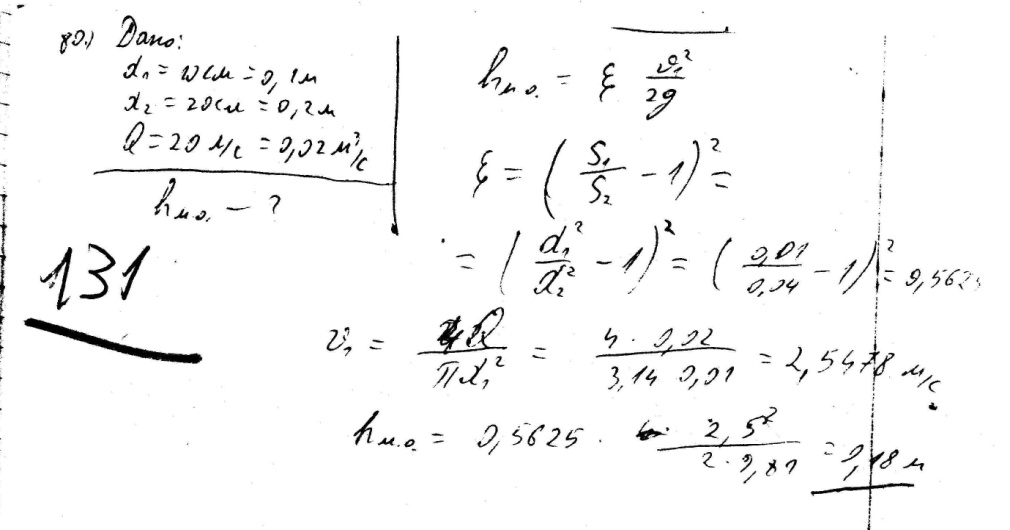 80.) Дано:
d₁ = 10 см = 0,1 м
d₂ = 20 см = 0,2 м
Q = 20 л/с = 0,02 м³/с
hм.о. – ?
131
hм.о. = ξ v₁²/2g
ξ = (S₁/S₂ - 1)² =
= (d₁²/d₂² - 1)² = (0,01/0,04 - 1)² = 0,5625
v₁ = 4Q/πd₁² = 4 · 0,02/3,14 0,01 = 2,5478 м/с
hм.о. = 0,5625 · 2,5²/2·9,81 = 0,18 м